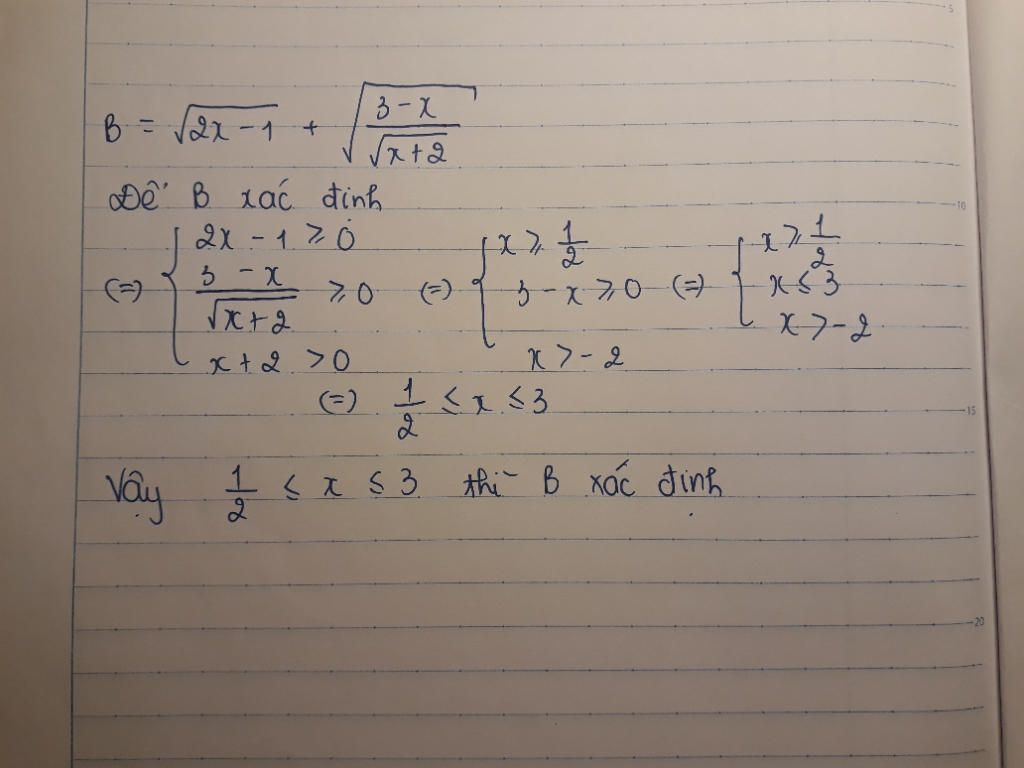 B = √(2x - 1) + √((3 - x)/(√(x + 2)))
Để B xác định
(=) { 2x - 1 ≥ 0 (=) { x ≥ 1/2 (=) { x ≥ 1/2
(3 - x)/(√(x + 2)) ≥ 0 3 - x ≥ 0 x ≤ 3
x + 2 > 0 x > -2 x > -2
(=) 1/2 ≤ x ≤ 3
Vậy 1/2 ≤ x ≤ 3 thì B xác định
5
10
15
20